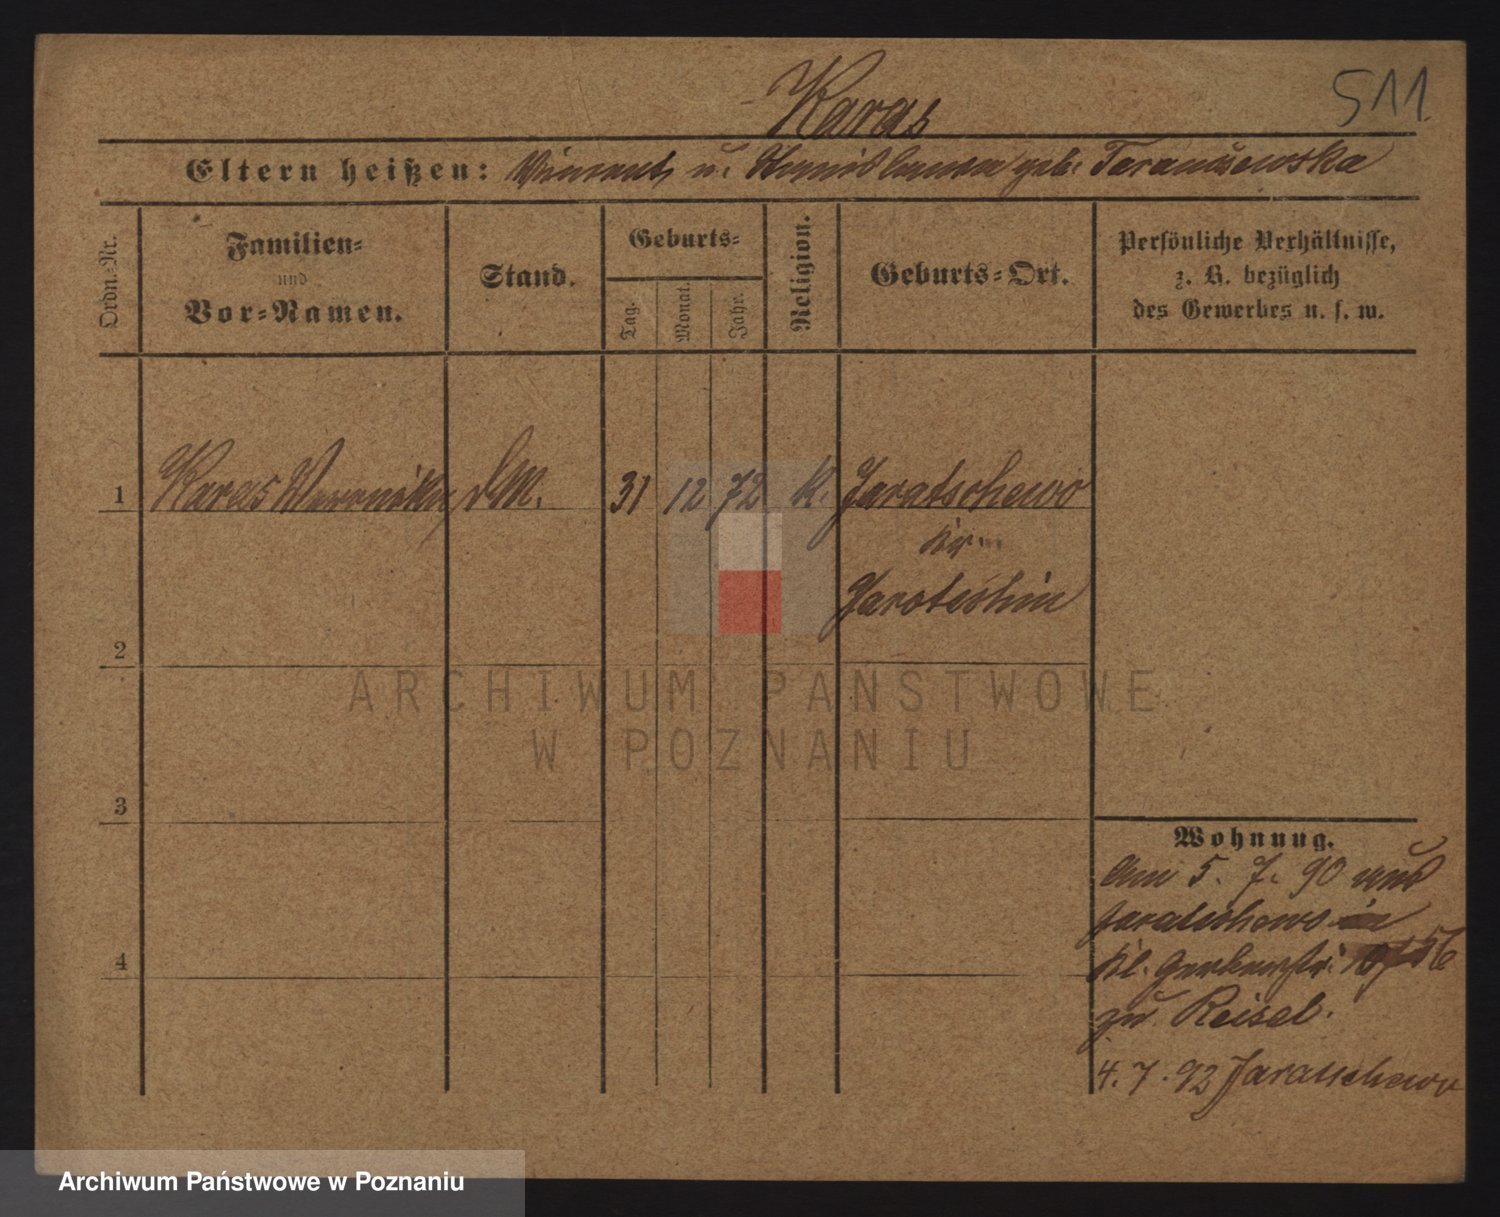 Karas
511.
Eltern heißen: Vincent u. Stanislawa geb. Taraszewska
Ordn.-Nr.
Familien-
und
Vor-Namen.
Stand.
Geburts-
Tag.
Monat.
Jahr.
Religion.
Geburts-Ort.
Persönliche Verhältnisse,
z. B. bezüglich
des Gewerbes u. s. w.
1 Karas Veronika DM. 31 12 72 K. Jaratschewo
Kr.
Jarotschin
2
ARCHIWUM PAŃSTWOWE
W POZNANIU
3
Wohnung.
Am 5. 7. 90 aus
Jaratschewo in
4
Kl. Gerberstr. 56
zu Reisel.
4. 7. 92 Jaratschewo
Archiwum Państwowe w Poznaniu